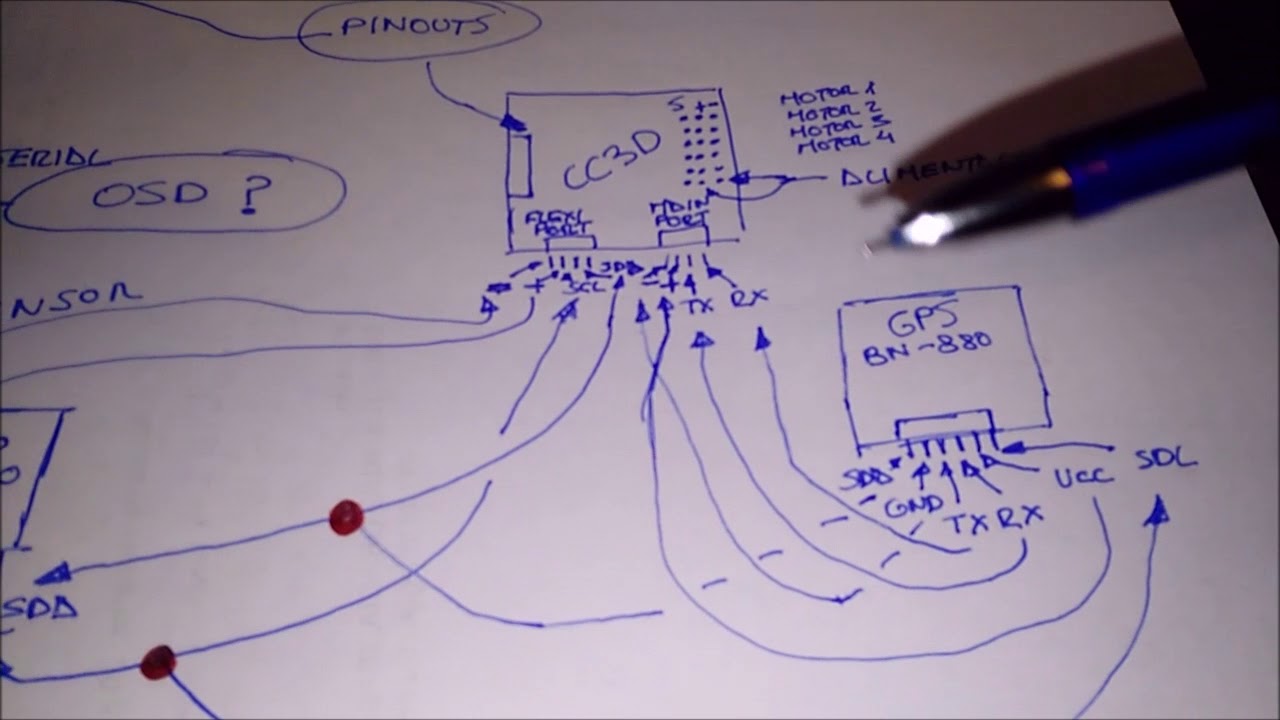 PINOUTS
S + -
MOTOR 1
MOTOR 2
MOTOR 3
MOTOR 4
CC3D
SERIAL
OSD ?
FLEXI PORT
MAIN PORT
- + SCL SDA - + TX RX
NSOR
GPS
BN-880
SDA GND TX RX VCC SDL
SDA